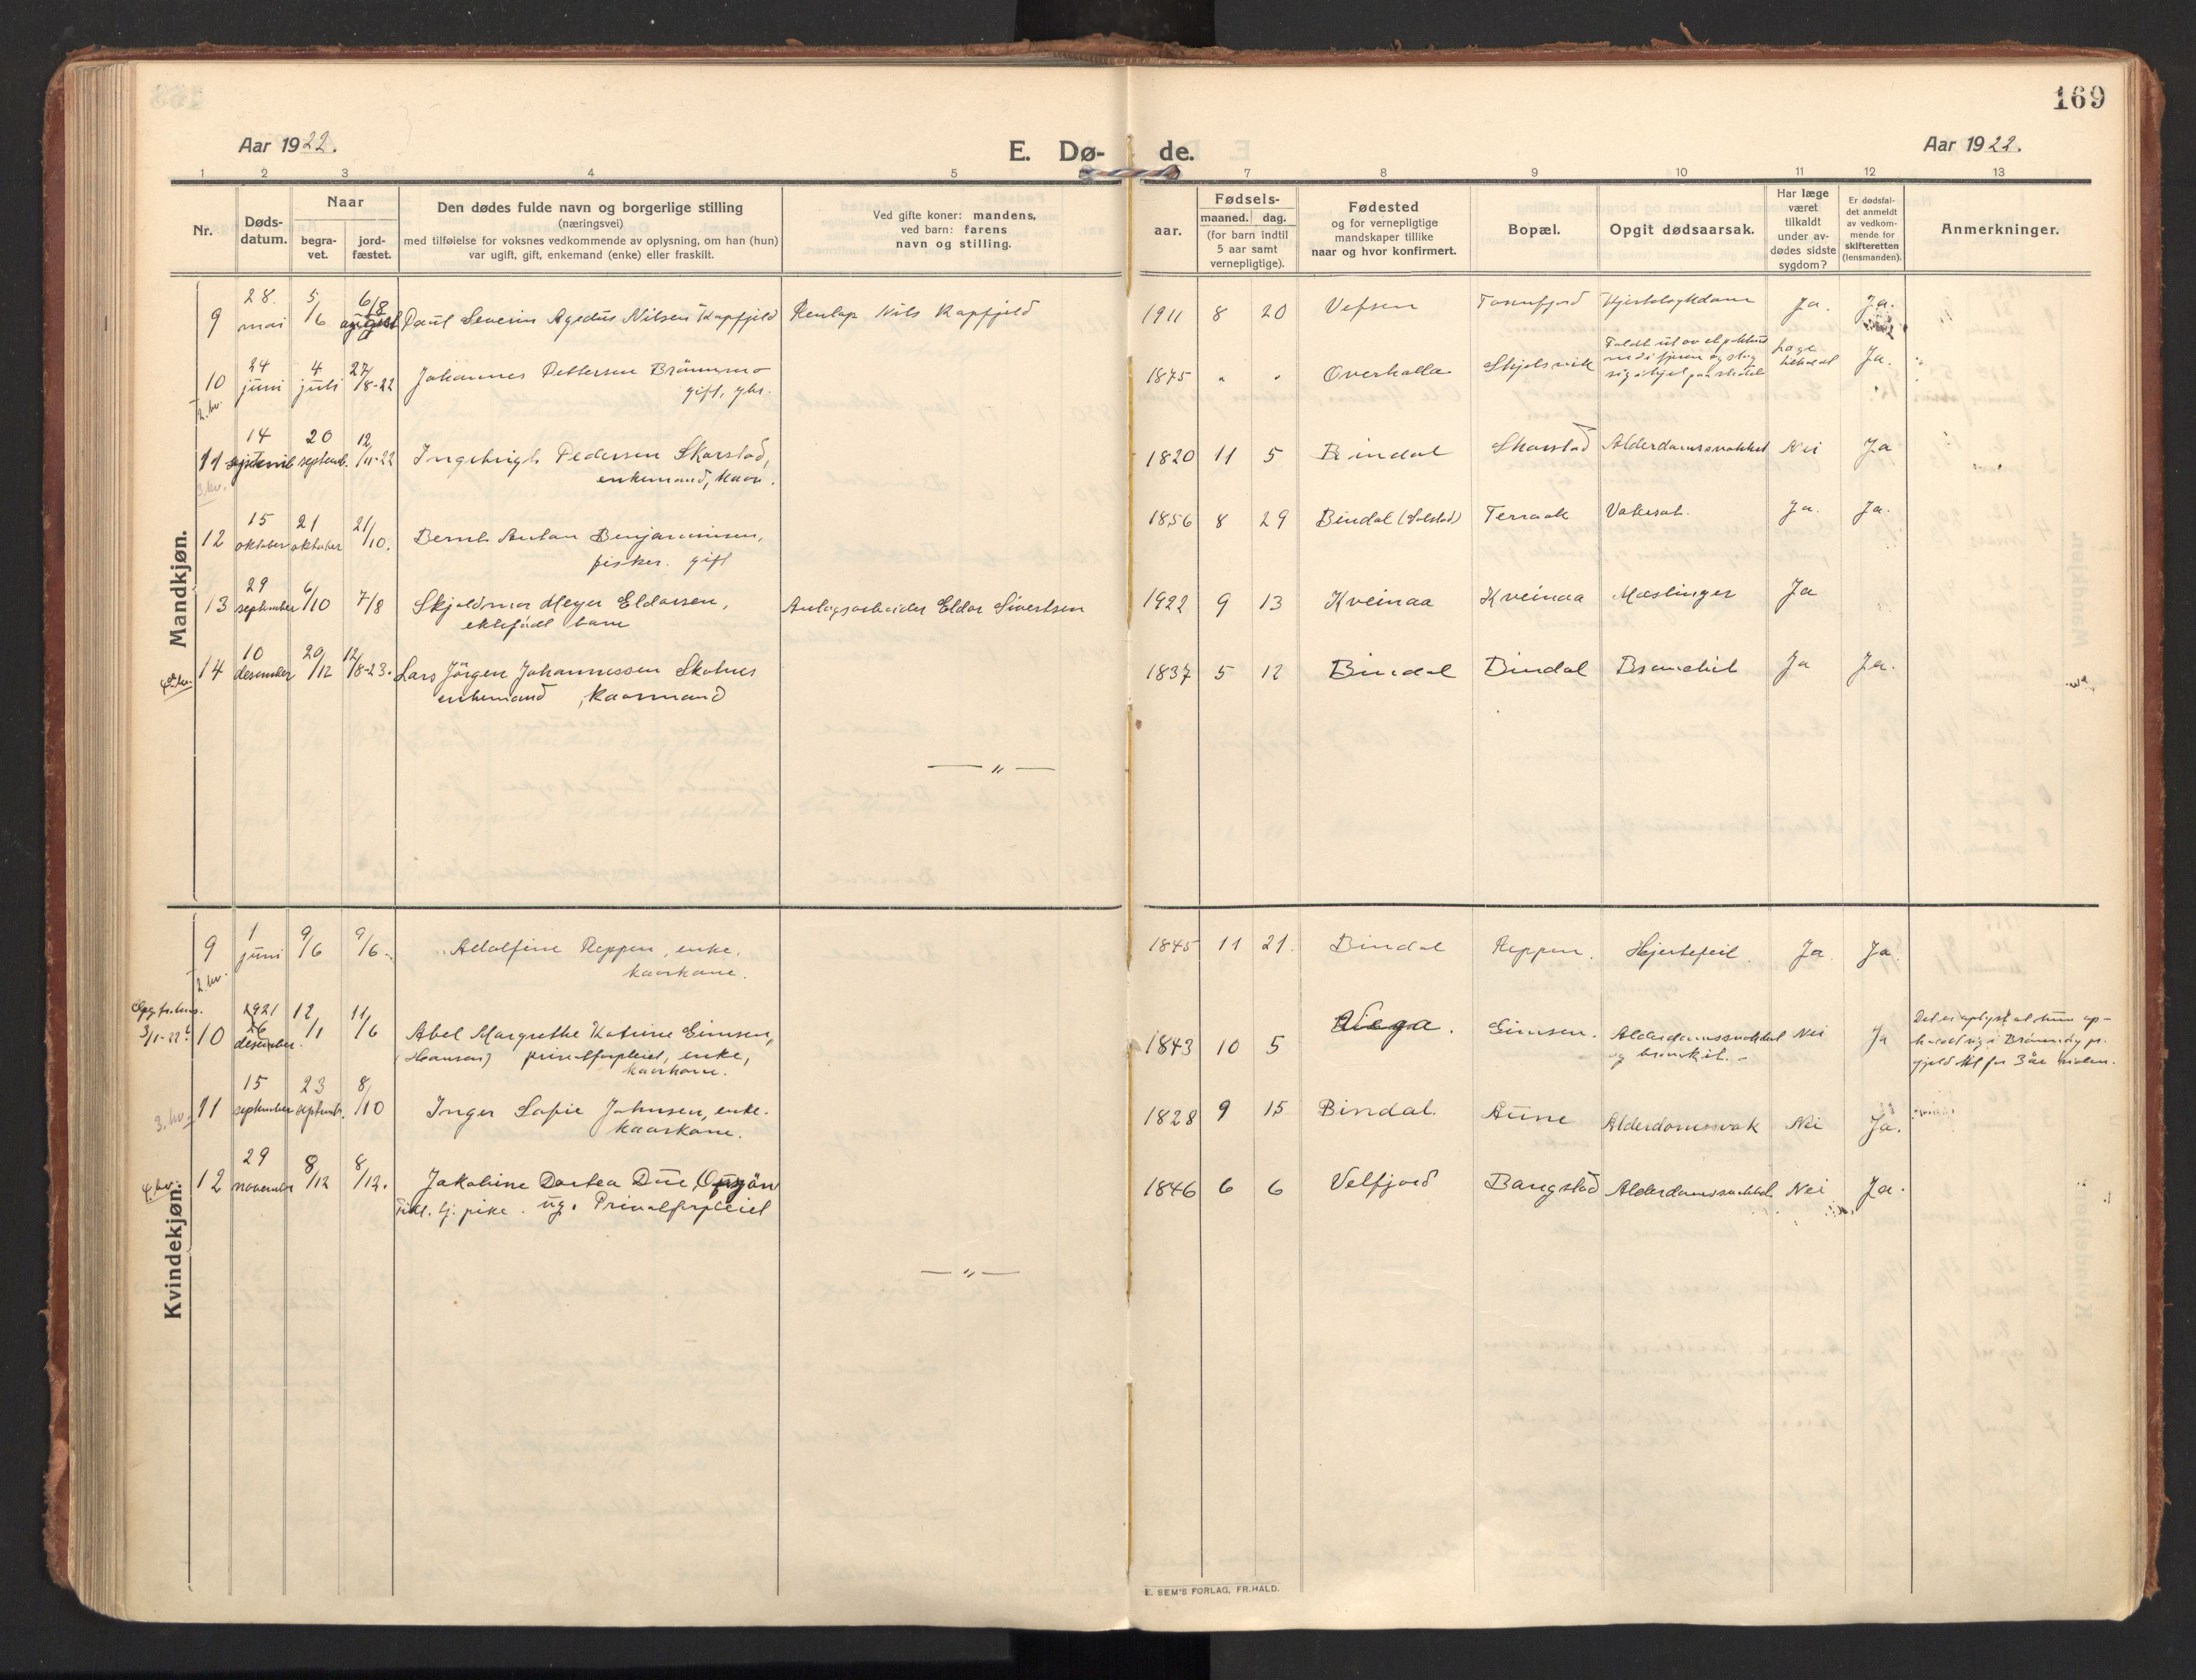 169
Aar 1922.
E. Dø- de.
Aar 1922.
1 2 3 4 5 6 7 8 9 10 11 12 13
Nr.
Døds-
datum.
Naar
begra-
vet.
jord-
fæstet.
Den dødes fulde navn og borgerlige stilling
(næringsvei)
med tilføielse for voksnes vedkommende av oplysning, om han (hun)
var ugift, gift, enkemand (enke) eller fraskilt.
Ved gifte koner: mandens,
ved barn: farens
navn og stilling.
Fødsels-
aar.
maaned. dag.
(for barn indtil
5 aar samt
vernepligtige).
Fødested
og for vernepligtige
mandskaper tillike
naar og hvor konfirmert.
Bopæl.
Opgit dødsaarsak.
Har læge
været
tilkaldt
under av-
dødes sidste
sygdom?
Er dødsfal-
det anmeldt
av vedkom-
mende for
skifteretten
(lensmanden).
Anmerkninger.
Mandkjøn.
9 28. mai 5/6 6/8 august Paul Severin Agedius Nilsen Kapfjeld Renlap Nils Kapfjeld 1911 8 20 Vefsen Tosenfjord Ja. Ja.
10 24 juni 4 juli 27/8-22 Johannes Pettersen Brønmo 1875 " " Overhalla Skjelsvik Ja.
gift, gbr.
2. kv.
11 14 septemb 20 septemb. 12/11-22 Ingebrigt Pedersen Skarstad, 1820 11 5 Bindal Skarstad Alderdomssvakhet Nei Ja
enkemand, kaarm.
3. kv.
12 15 oktober 21 oktober 21/10. Bernt Anton Benjaminsen, 1856 8 29 Bindal (Solstad) Terraak Ja. Ja.
fisker. gift
13 29 september 6/10 7/8 Skjoldmar Meyer Eldarsen, Anlægsarbeider Eldar Sivertsen 1922 9 13 Kveinaa Kveinaa Mæslinger Ja
ektefødt barn
4. kv. 14 10 desember 20/12 12/8-23. Lars Jörgen Johannessen Skotnes 1837 5 12 Bindal Bindal Bronchit Ja Ja.
enkemand, kaarmand
— " —
Kvindekjøn.
9 1 juni 9/6 9/6. Adolfine Reppen, enke, 1845 11 21. Bindal Reppen. Hjertefeil. Ja. Ja.
kaarkone.
2. kv.
3/1-22 10 1921 26 desember. 12/1 11/6 Abel Margrethe Katrine Eimsen, 1843 10 5 Vega. Eimsen. Alderdomssvakhet Nei Ja Det er oplyst at hun op-
(Hansen) privatforpleiet, enke, og bronkit. - holdt sig i Brønnöy pr.
kaarkone. gjeld til for 3 år siden.
3. kv. 11 15 september 23 septemb. 8/10 Inger Sofie Johnsen, enke. 1828 9 15 Bindal. Aune Alderdomssvak Nei Ja.
kaarkone.
4. kv. 12 29 november 8/12 8/12. Jakobine Dortea Due, 1846 6 6 Velfjord Bangstad Alderdomssvakhet. Nei Ja.
tidl. tj. pike. ug. Privatforpleiet
— " —
E. SEM'S FORLAG, FR.HALD.